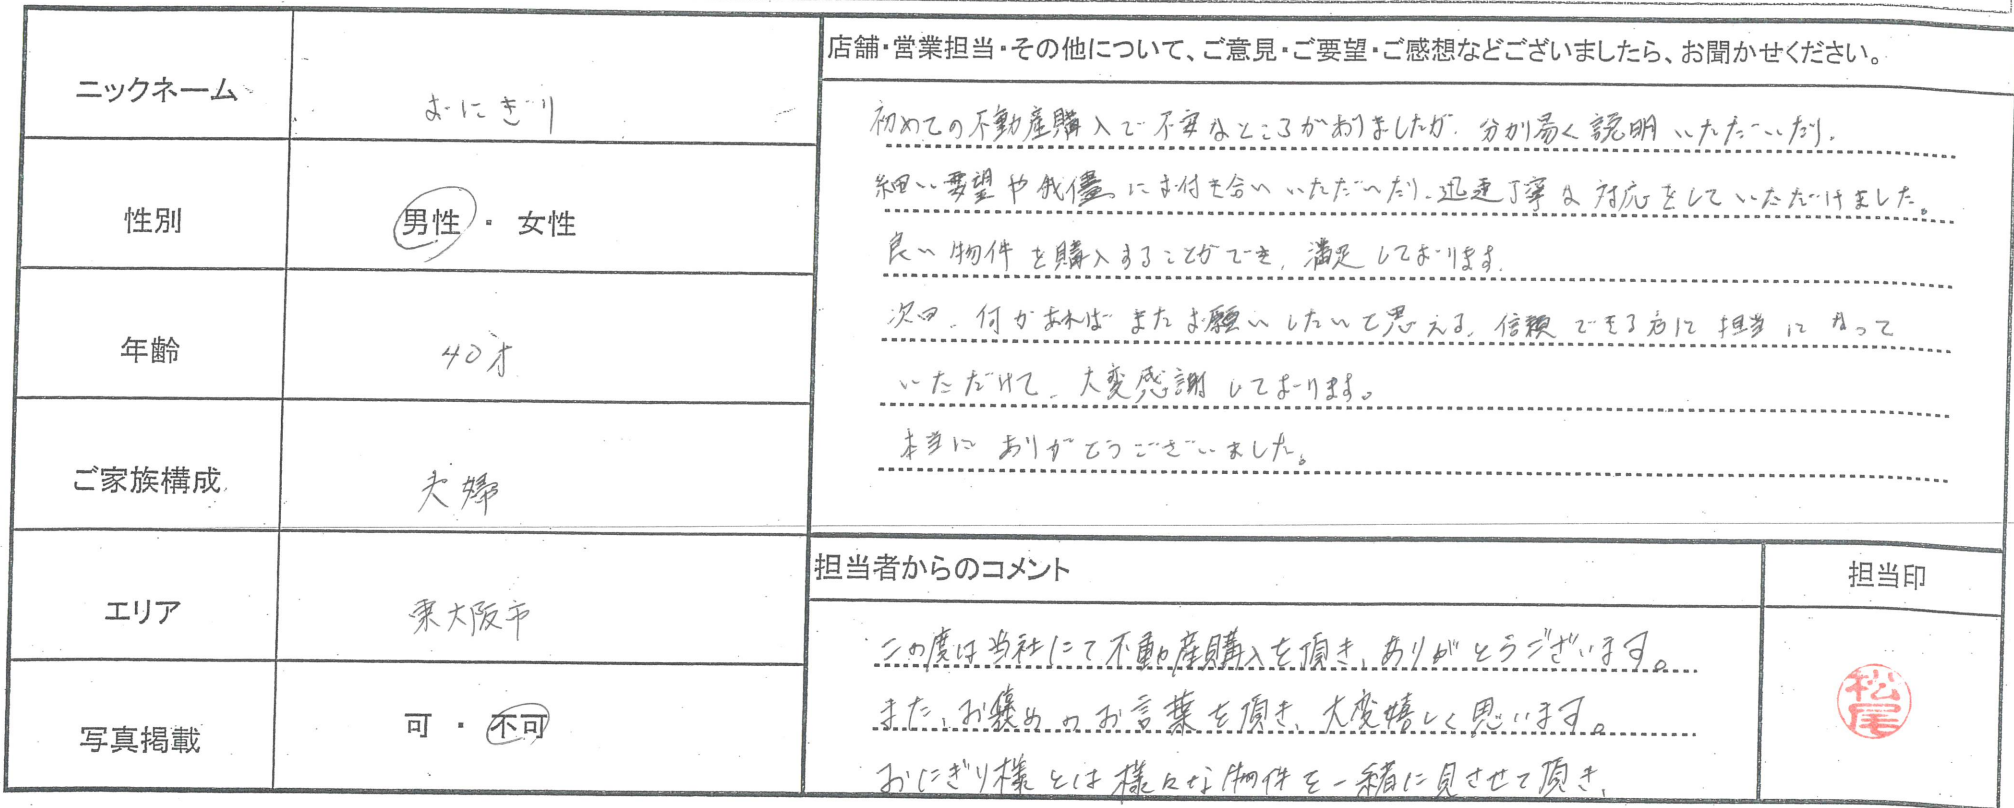 ニックネーム
おにぎり
性別
男性・女性
年齢
40才
ご家族構成
夫婦
エリア
東大阪市
写真掲載
可・不可
店舗・営業担当・その他について、ご意見・ご要望・ご感想などございましたら、お聞かせください。
初めての不動産購入で不安なところがありましたが、分かり易く説明いただいたり、
細い要望や我儘にお付き合いいただいたり、迅速丁寧な対応をしていただけました。
良い物件を購入することができ、満足しております。
次回、何かあればまたお願いしたいと思える、信頼できる方に担当になって
いただけて、大変感謝しております。
本当にありがとうございました。
担当者からのコメント
この度は当社にて不動産購入を頂き、ありがとうございます。
また、お褒めのお言葉を頂き、大変嬉しく思います。
おにぎり様とは様々な物件を一緒に見させて頂き、
担当印
松尾